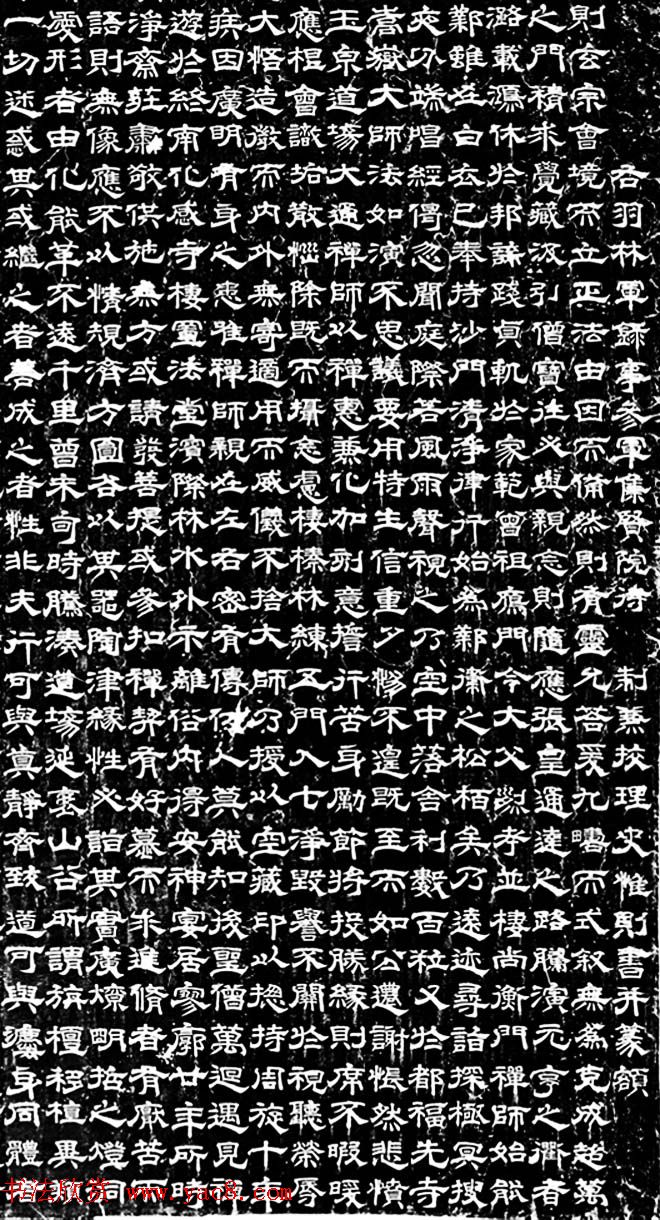 右羽林軍録事參軍集賢院待制兼校理史惟則書并篆額
則玄宗會境而立正法由因而備然則有靈允答爰九疇而式叙無為克成超萬
之門積求覺藏汲引僧寶往必與親念則隨應張皇通達之路騰演元亨之衢者
潞載休於邦諜踐貞軌於家範曾祖鴈門令大父烈考並棲尚衡門禪師始能
鄴雖在白衣已奉持沙門清淨律行始為鄴衛之松栢矣乃遠迹尋詣探極冥搜
夾端唱經偈忽聞庭際若風雨聲視之乃空中落舍利數百粒又於都福先寺
嵩嶽大師法如演不思議要用特生信重夕惕不遑既至而如公遷謝悵然悲憤
玉泉道場大通禪師以禪惠兼化加刻意誓行苦身勵節將投勝緣則席不暇暖
應根會識垢散惱除既而攝念慮棲榛林練五門入七淨毀譽不關於視聽榮辱
大悟造微而内外無寄適用而威儀不捨大師乃授以空藏印以揔持周旋十年
疾因廣明有身之患惟禪師親在左右密有傳付人莫能知後聖僧萬迴遇見禪
遊於終南化感寺棲置法堂濱際林水外示離俗内得安神宴居寥廓廿年所時
淨齋莊肅敬供施無方或請發菩提或參扣禪契有好慕而求進脩者有厭苦而
語則無像應不以情規濟方圓各以其器陶津緣性必詣其實廣燎明哲之燈洞
愛形者由化能革不遠千里曾未旬時騰湊道場延袤山谷所謂旃檀移植異
一切迷惑其或繼之者善成之者性非夫行可與真靜齊致道可與法身同體
书法欣赏 www.yac8.com